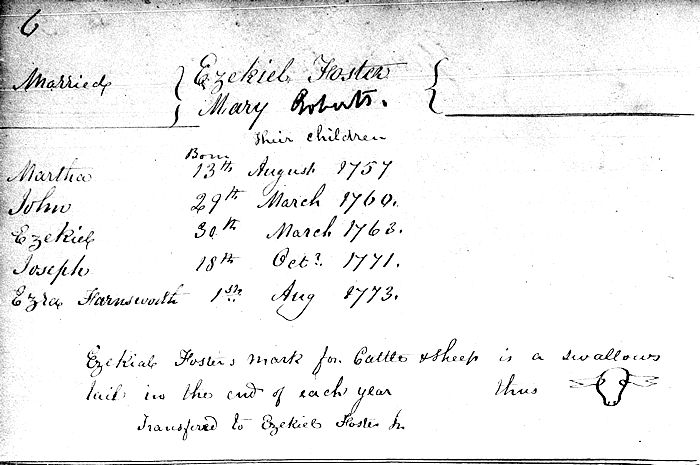 6
Married } Ezekiel Foster {
Mary Roberts.
Their children
Born
Martha 13th August 1757
John 29th March 1760.
Ezekiel 30th March 1763.
Joseph 18th Octr. 1771.
Ezra Farnsworth 1st Aug 1773.
Ezekiel Fosters mark for Cattle & Sheep is a swallows
tail in the end of each year thus
Transferred to Ezekiel Foster Jr